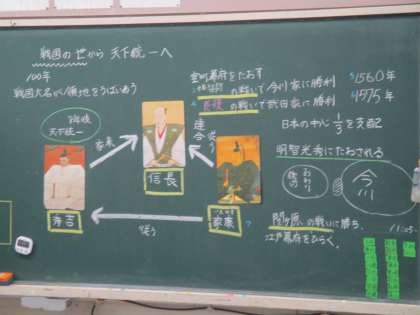 戦国の世から 天下統一へ
100年
戦国大名が領地をうばいあう
室町幕府をたおす
桶狭間の戦いで今川家に勝利 1560年
長篠の戦いで武田家に勝利 1575年
日本の中心 1/3を支配
明智光秀にたおされる
天下統一
家来
連合
信長
秀吉
家康
従う
おわり
織田
今川
関ヶ原の戦いに勝ち、
江戸幕府をひらく。
11:05~